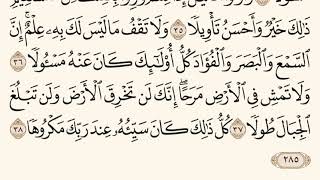 ذَٰلِكَ خَيْرٌ وَأَحْسَنُ تَأْوِيلًا ٣٥ وَلَا تَقْفُ مَا لَيْسَ لَكَ بِهِۦ عِلْمٌ ۚ إِنَّ
ٱلسَّمْعَ وَٱلْبَصَرَ وَٱلْفُؤَادَ كُلُّ أُو۟لَٰٓئِكَ كَانَ عَنْهُ مَسْـُٔولًا ٣٦
وَلَا تَمْشِ فِى ٱلْأَرْضِ مَرَحًا ۖ إِنَّكَ لَن تَخْرِقَ ٱلْأَرْضَ وَلَن تَبْلُغَ
ٱلْجِبَالَ طُولًا ٣٧ كُلُّ ذَٰلِكَ كَانَ سَيِّئُهُۥ عِندَ رَبِّكَ مَكْرُوهًا ٣٨
٢٨٥